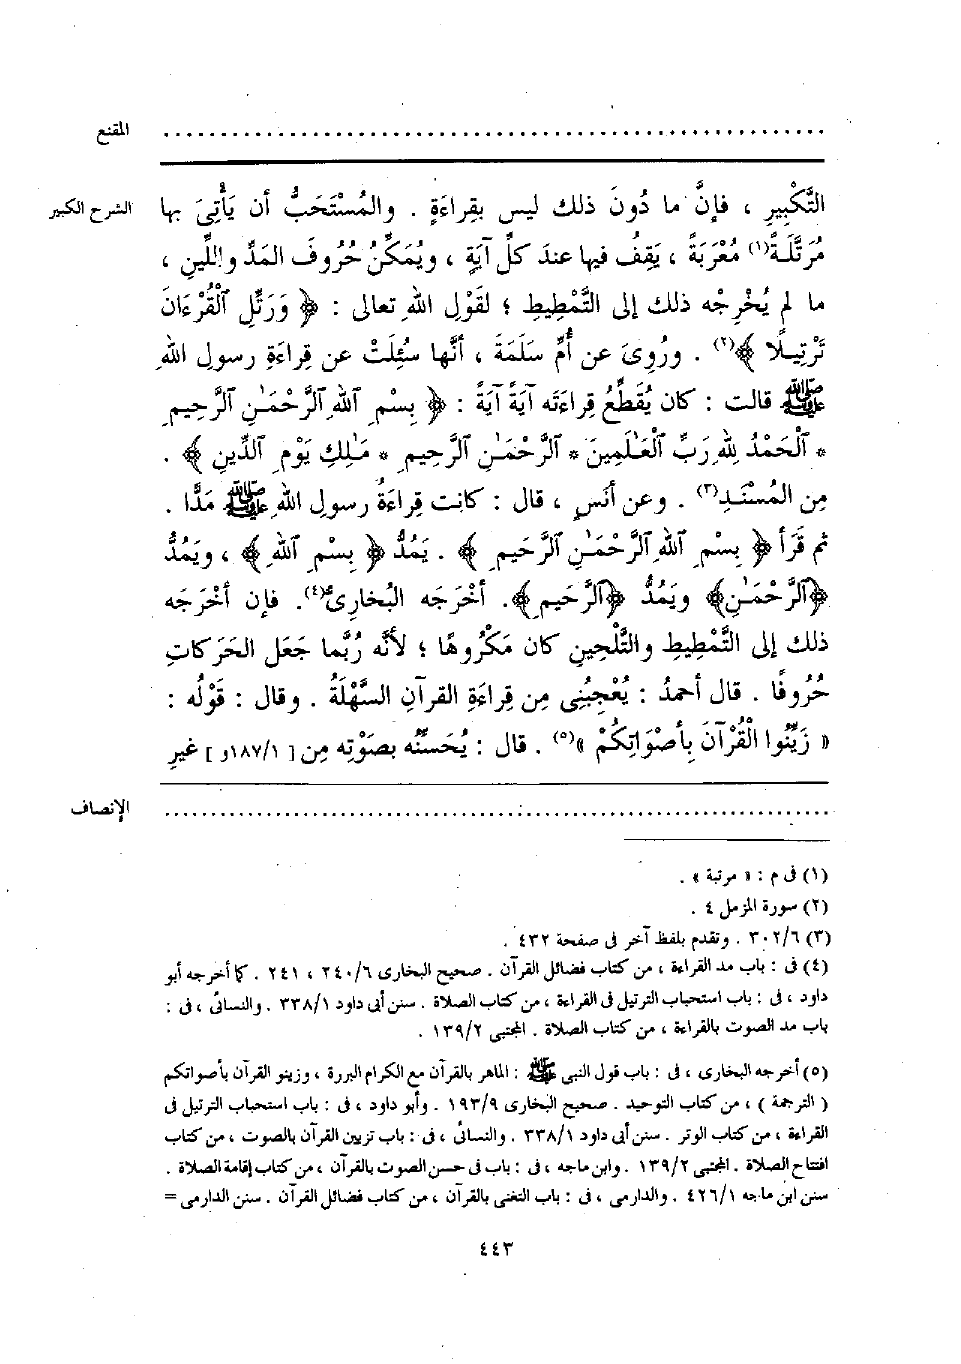 المقنع ..........................................................
الشرح الكبير التَّكْبِيرِ ، فإنَّ ما دُونَ ذلك ليس بقِراءَةٍ . والمُسْتَحَبُّ أن يَأْتِىَ بها
مُرَتَّلَةً(١) مُعْرَبَةً ، يَقِفُ فيها عندَ كلِّ آيَةٍ ، ويُمَكِّنُ حُرُوفَ المَدِّ واللِّينِ ،
ما لم يُخْرِجْه ذلك إلى التَّمْطِيطِ ؛ لقَوْلِ اللهِ تعالى : ﴿ وَرَتِّلِ ٱلْقُرْءَانَ
تَرْتِيلًا ﴾(٢) . ورُوِىَ عن أُمِّ سَلَمَةَ ، أنَّها سُئِلَتْ عن قِراءَةِ رسولِ اللهِ
ﷺ قالت : كان يُقَطِّعُ قِراءَتَه آيَةً آيَةً : ﴿ بِسْمِ ٱللهِ ٱلرَّحْمَـٰنِ ٱلرَّحِيمِ
* ٱلْحَمْدُ لِلهِ رَبِّ ٱلْعَـٰلَمِينَ * ٱلرَّحْمَـٰنِ ٱلرَّحِيمِ * مَـٰلِكِ يَوْمِ ٱلدِّينِ ﴾ .
مِن المُسْنَدِ(٣) . وعن أنَسٍ ، قال : كانت قِراءَةُ رسولِ اللهِ ﷺ مَدًّا .
ثم قَرَأ ﴿ بِسْمِ ٱللهِ ٱلرَّحْمَـٰنِ ٱلرَّحِيمِ ﴾ . يَمُدُّ ﴿ بِسْمِ ٱللهِ ﴾ ، ويَمُدُّ
﴿ٱلرَّحْمَـٰنِ﴾ ويَمُدُّ ﴿ٱلرَّحِيمِ﴾. أخْرَجَه البُخارِىُّ(٤). فإن أخْرَجَه
ذلك إلى التَّمْطِيطِ والتَّلْحِينِ كان مَكْرُوهًا ؛ لأنَّه رُبَّما جَعَل الحَرَكاتِ
حُرُوفًا . قال أحمدُ : يُعْجِبُنِى مِن قِراءَةِ القرآنِ السَّهْلَةُ . وقال : قَوْلُه :
« زَيِّنُوا الْقُرْآنَ بِأصْوَاتِكُمْ »(٥) . قال : يُحَسِّنُه بصَوْتِه مِن [ ١٨٧/١و ] غيرِ
الإنصاف ..........................................................
(١) فى م : « مرتبة » .
(٢) سورة المزمل ٤ .
(٣) ٣٠٢/٦ . وتقدم بلفظ آخر فى صفحة ٤٣٢ .
(٤) فى : باب مد القراءة ، من كتاب فضائل القرآن . صحيح البخارى ٢٤٠/٦ ، ٢٤١ . كما أخرجه أبو
داود ، فى : باب استحباب الترتيل فى القراءة ، من كتاب الصلاة . سنن أبى داود ٣٣٨/١ . والنسائى ، فى :
باب مد الصوت بالقراءة ، من كتاب الصلاة . المجتبى ١٣٩/٢ .
(٥) أخرجه البخارى ، فى : باب قول النبى ﷺ : الماهر بالقرآن مع الكرام البررة ، وزينو القرآن بأصواتكم
( الترجمة ) ، من كتاب التوحيد . صحيح البخارى ١٩٣/٩ . وأبو داود ، فى : باب استحباب الترتيل فى
القراءة ، من كتاب الوتر . سنن أبى داود ٣٣٨/١ . والنسائى ، فى : باب تزيين القرآن بالصوت ، من كتاب
افتتاح الصلاة . المجتبى ١٣٩/٢ . وابن ماجه ، فى : باب فى حسن الصوت بالقرآن ، من كتاب إقامة الصلاة .
سنن ابن ماجه ٤٢٦/١ . والدارمى ، فى : باب التغنى بالقرآن ، من كتاب فضائل القرآن . سنن الدارمى =
٤٤٣